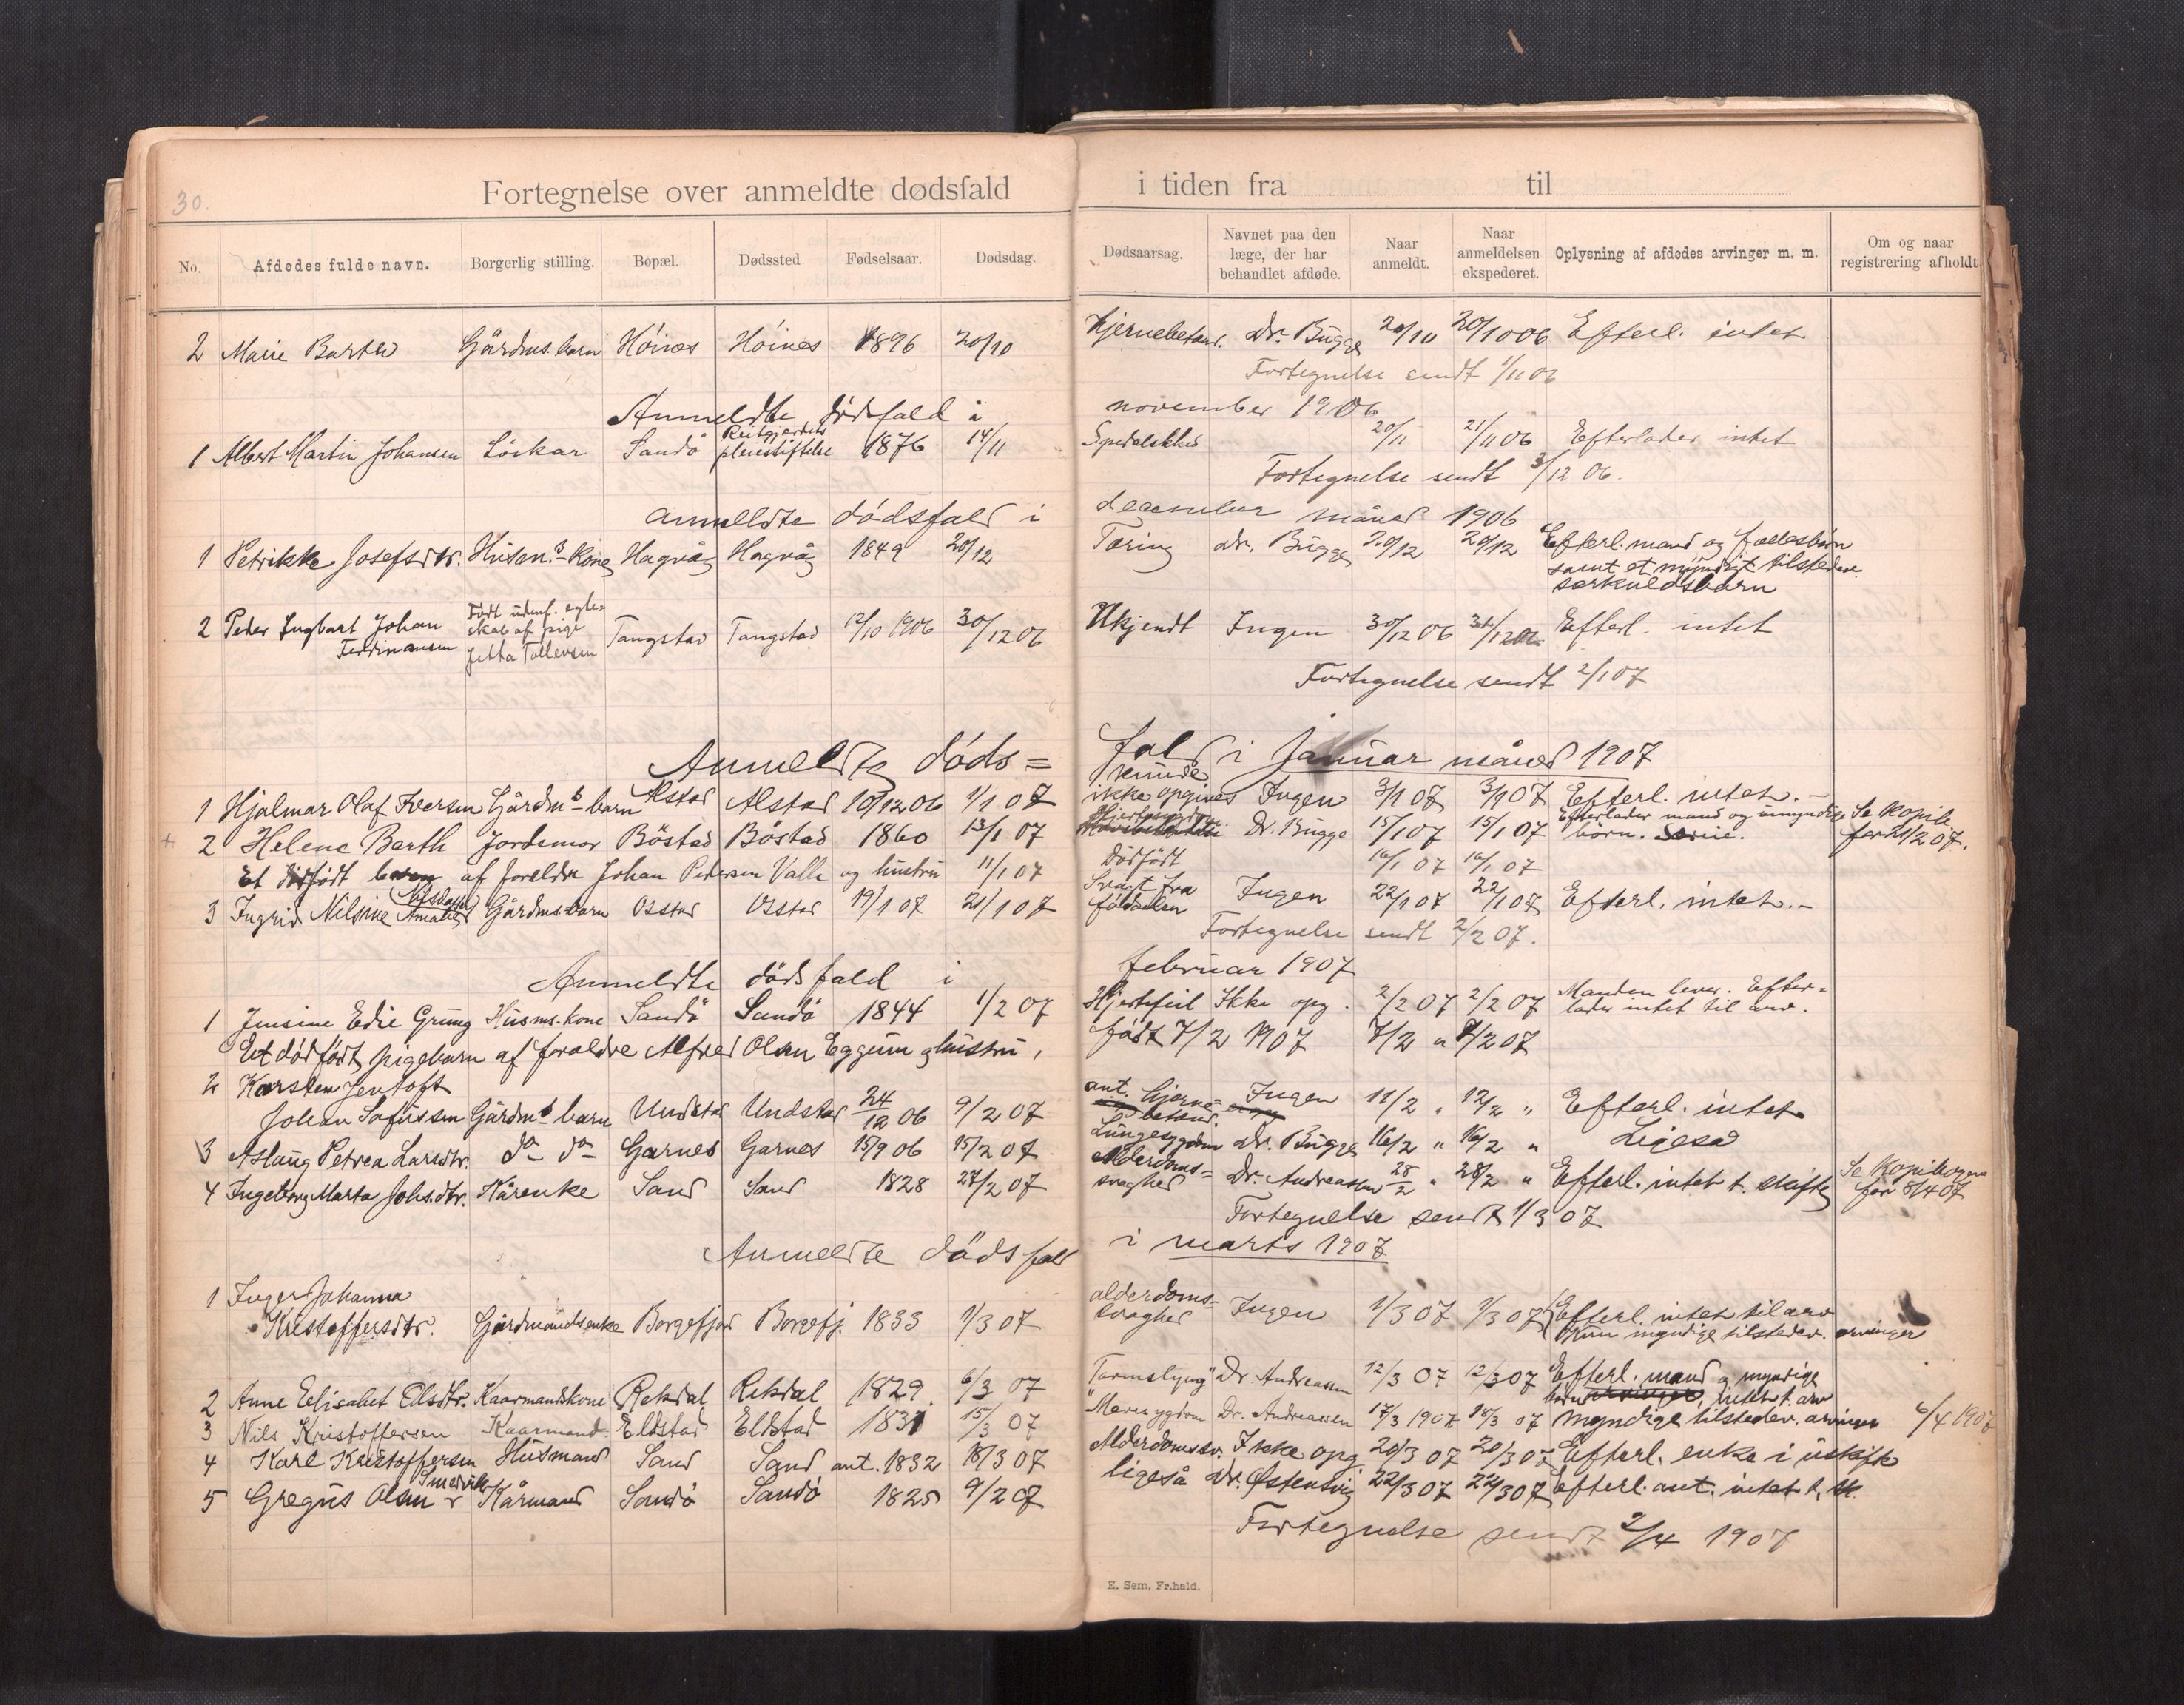 30.
Fortegnelse over anmeldte dødsfald i tiden fra til
No. Afdødes fulde navn. Borgerlig stilling. Bopæl. Dødssted Fødselsaar. Dødsdag. Dødsaarsag. Navnet paa den læge, der har behandlet afdøde. Naar anmeldt. Naar anmeldelsen ekspederet. Oplysning af afdødes arvinger m. m. Om og naar registrering afholdt.
2 Marie Barth Gårdms. barn Höines Höines 1896 20/10 Hjernebetænd. Dr. Bügge 20/10 20/10 06 Efterl. intet
Fortegnelse sendt 1/11 06
Anmeldte dödsfald i november 1906
1 Albert Martin Johansen Löskar Sandö Reitgjerdets pleiestiftelse 1876 14/11 Spedalskhed 20/11 21/11 06 Efterlader intet
Fortegnelse sendt 3/12 06.
Anmeldte dödsfald i december måned 1906
1 Petrikke Josefsdtr. Hüsm.s-kone Hagvåg Hagvåg 1849 20/12 Tæring dr. Bügge 20/12 20/12 Efterl. mand og fællesbörn
samt et myndigt tilstedev.
særkuldsbarn
2 Peder Ingbart Johan
Ferdinansen
Født udenf. ægte-
skab af pige
Jetta Tollevsen
Tangstad Tangstad 12/10 1906 30/12 06 Ukjendt Ingen 30/12 06 31/12 06 Efterl. intet
Fortegnelse sendt 2/1 07
Anmeldte döds= fald i januar måned 1907
1 Hjalmar Olaf Iversen Gårdm.s-barn Alstad Alstad 10/12 06 1/1 07 kunde
ikke opgives Ingen 3/1 07 3/1 07 Efterl. intet.-
2 Helene Barth Jordemor Böstad Böstad 1860 13/1 07 Hjertesygdom Dr. Bügge 15/1 07 15/1 07 Efterlader mand og umyndige
börn. Se kopib.
for 21/2 07.
Et dødfödt barn af foreldre Johan Pedersen Valle og hustru 11/1 07 Dödfödt 16/1 07 16/1 07
3 Ingrid Nilsine Amalie Nilsdatter Gårdmsbarn Ostad Ostad 19/1 07 21/1 07 Svagt fra
födselen Ingen 22/1 07 22/1 07 Efterl. intet.-
Fortegnelse sendt 2/2 07.
Anmeldte dödsfald i februar 1907
1 Jensine Edie Grung Hüsms. kone Sandö Sandö 1844 1/2 07 Hjertefeil Ikke opg. 2/2 07 2/2 07 Manden lever. Efter=
lader intet til arv.
Et dödfödt pigebarn af foreldre Alfred Olsen Eggum og hustru, födt 7/2 1907 7/2 " 8/2 07
2 Karsten Jentoft
Johan Sofussen Gårdm.s barn Undstad Undstad 24/12 06 9/2 07 ant. hjerne=
betænd. Ingen 11/2 " 12/2 " Efterl. intet
3 Aslaug Petrea Larsdtr. do do Garnes Garnes 15/9 06 15/2 07 Lungesygdom Dr. Bügge 16/2 " 16/2 " Ligeså
4 Ingeborg Marta Johs.dtr. Kårenke Sand Sand 1828 27/2 07 Alderdoms=
svaghed Dr. Andreassen 28/2 " 28/2 " Efterl. intet t. skifte Se Kopibogen
for 8/4 07
Fortegnelse sendt 1/3 07
Anmeldte dödsfald i marts 1907
1 Inger Johanna
Kristoffersdtr. Gårdmandsenke Borgefjord Borgefj. 1833 1/3 07 alderdoms=
svaghed Ingen 1/3 07 1/3 07 Efterl. intet til arv
Kun myndige tilstedev. arvinger
2 Anne Eelisabet Olsdtr. Kaarmandskone Rekdal Rekdal 1829 6/3 07 Tarmslyng Dr. Andreassen 12/3 07 12/3 07 Efterl. mand og myndige
börn, intet t. arv
3 Nils Kristoffersen Kaarmand Eldstad Eldstad 1831 15/3 07 Mavesygdom Dr. Andreassen 17/3 1907 18/3 07 myndige tilstedev. arvinger 6/4 1907
4 Karl Kristoffersen Husmand Sand Sand ant. 1832 18/3 07 Alderdomssv. Ikke opg 20/3 07 20/3 07 Efterl. enke i uskifte
5 Gregus Olsen Smedvik Kårmand Sandö Sandö 1825 9/2 07 ligeså dr. Østensvig 22/3 07 22/3 07 Efterl. ant. intet t. sk.
Fortegnelse sendt 2/4 1907
E. Sem, Fr.hald.